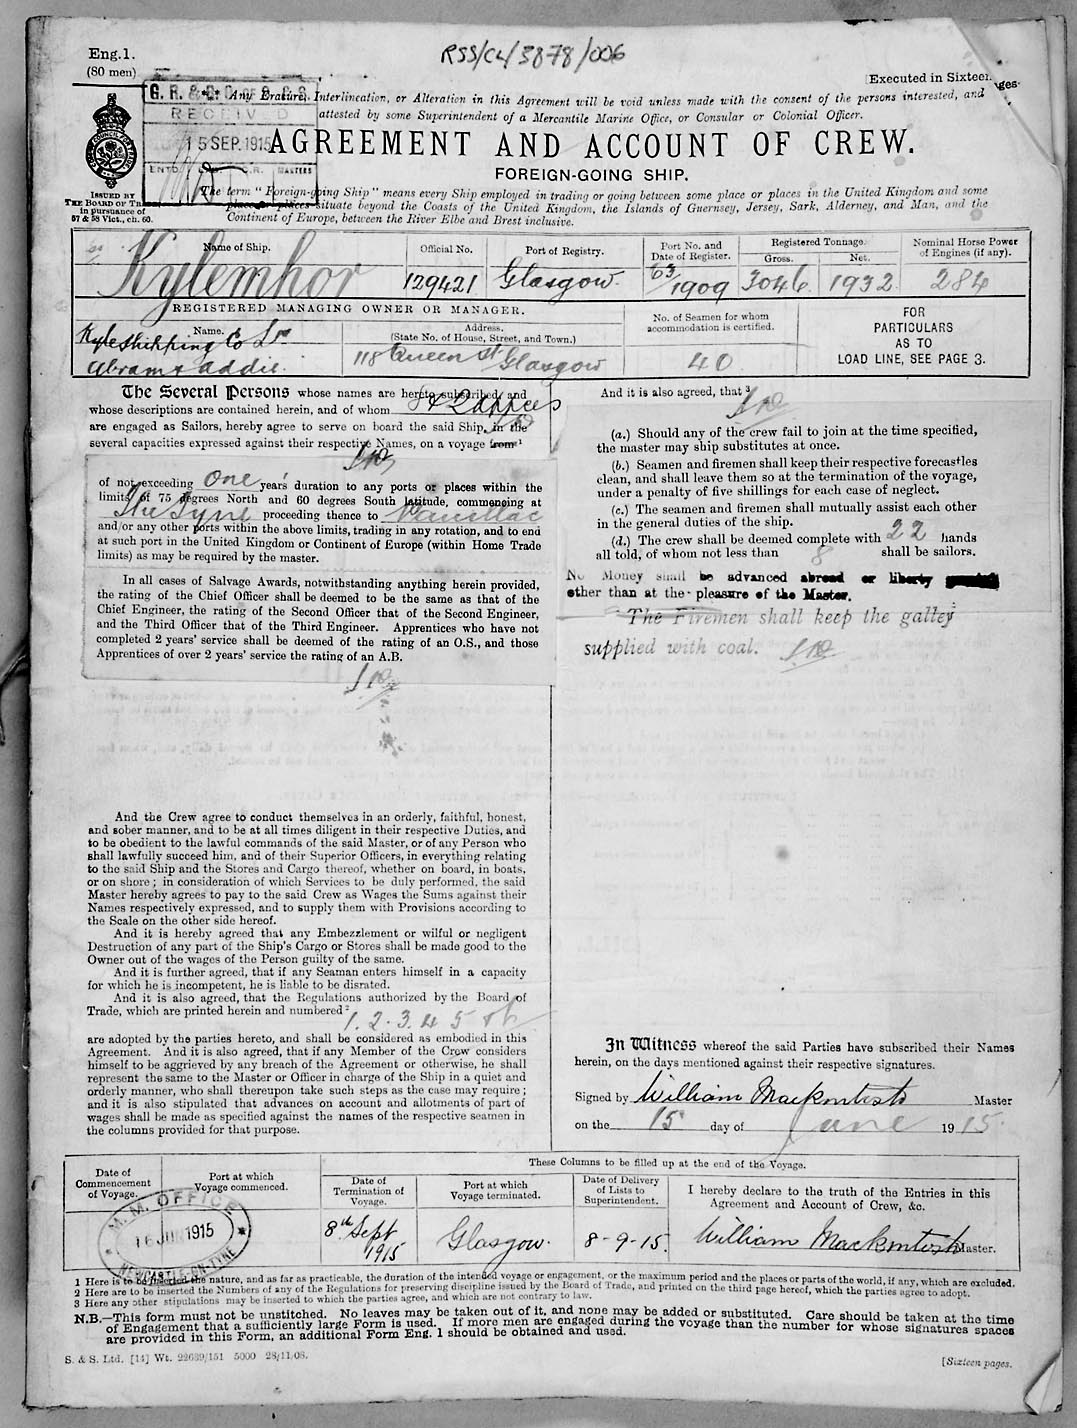 Eng. 1.
(80 men)
RSS/CL/3878/006
[Executed in Sixteen Pages
Any Erasure, Interlineation, or Alteration in this Agreement will be void unless made with the consent of the persons interested, and
attested by some Superintendent of a Mercantile Marine Office, or Consular or Colonial Officer.
G. R. & S.
RECEIVED
15 SEP. 1915
MASTERS
AGREEMENT AND ACCOUNT OF CREW.
FOREIGN-GOING SHIP.
ISSUED BY
THE BOARD OF TRADE
in pursuance of
57 & 58 Vict., ch. 60.
The term "Foreign-going Ship" means every Ship employed in trading or going between some place or places in the United Kingdom and some
place or places situate beyond the Coasts of the United Kingdom, the Islands of Guernsey, Jersey, Sark, Alderney, and Man, and the
Continent of Europe, between the River Elbe and Brest inclusive.
Name of Ship. Official No. Port of Registry. Port No. and Date of Register. Registered Tonnage. Gross. Net. Nominal Horse Power of Engines (if any).
Kylemhor 129421 Glasgow. 63/1909 3046 1932 284
REGISTERED MANAGING OWNER OR MANAGER.
Name. Address. (State No. of House, Street, and Town.)
Kyle Shipping Co Ld
118 Queen St Glasgow
No. of Seamen for whom
accommodation is certified.
40
FOR
PARTICULARS
AS TO
LOAD LINE, SEE PAGE 3.
The Several Persons whose names are hereto subscribed, and
whose descriptions are contained herein, and of whom
are engaged as Sailors, hereby agree to serve on board the said Ship, in the
several capacities expressed against their respective Names, on a voyage from 1
of not exceeding One years' duration to any ports or places within the
limits of 75 degrees North and 60 degrees South latitude, commencing at
The Tyne proceeding thence to Pauillac
and/or any other ports within the above limits, trading in any rotation, and to end
at such port in the United Kingdom or Continent of Europe (within Home Trade
limits) as may be required by the master.
In all cases of Salvage Awards, notwithstanding anything herein provided,
the rating of the Chief Officer shall be deemed to be the same as that of the
Chief Engineer, the rating of the Second Officer that of the Second Engineer,
and the Third Officer that of the Third Engineer. Apprentices who have not
completed 2 years' service shall be deemed of the rating of an O.S., and those
Apprentices of over 2 years' service the rating of an A.B.
And the Crew agree to conduct themselves in an orderly, faithful, honest,
and sober manner, and to be at all times diligent in their respective Duties, and
to be obedient to the lawful commands of the said Master, or of any Person who
shall lawfully succeed him, and of their Superior Officers, in everything relating
to the said Ship and the Stores and Cargo thereof, whether on board, in boats,
or on shore; in consideration of which Services to be duly performed, the said
Master hereby agrees to pay to the said Crew as Wages the Sums against their
Names respectively expressed, and to supply them with Provisions according to
the Scale on the other side hereof.
And it is hereby agreed that any Embezzlement or wilful or negligent
Destruction of any part of the Ship's Cargo or Stores shall be made good to the
Owner out of the wages of the Person guilty of the same.
And it is further agreed, that if any Seaman enters himself in a capacity
for which he is incompetent, he is liable to be disrated.
And it is also agreed, that the Regulations authorized by the Board of
Trade, which are printed herein and numbered 2
1. 2. 3. 4 5
are adopted by the parties hereto, and shall be considered as embodied in this
Agreement. And it is also agreed, that if any Member of the Crew considers
himself to be aggrieved by any breach of the Agreement or otherwise, he shall
represent the same to the Master or Officer in charge of the Ship in a quiet and
orderly manner, who shall thereupon take such steps as the case may require;
and it is also stipulated that advances on account and allotments of part of
wages shall be made as specified against the names of the respective seamen in
the columns provided for that purpose.
And it is also agreed, that 3
(a.) Should any of the crew fail to join at the time specified,
the master may ship substitutes at once.
(b.) Seamen and firemen shall keep their respective forecastles
clean, and shall leave them so at the termination of the voyage,
under a penalty of five shillings for each case of neglect.
(c.) The seamen and firemen shall mutually assist each other
in the general duties of the ship.
(d.) The crew shall be deemed complete with 22 hands
all told, of whom not less than 8 shall be sailors.
No Money shall be advanced abroad or liberty
other than at the pleasure of the Master.
The Firemen shall keep the galley
supplied with coal.
In Witness whereof the said Parties have subscribed their Names
herein, on the days mentioned against their respective signatures.
Signed by William Mackintosh Master
on the 15 day of June 1915.
Date of Commencement of Voyage. Port at which Voyage commenced.
M. M. OFFICE
16 JUN 1915
NEWCASTLE-ON-TYNE
These Columns to be filled up at the end of the Voyage.
Date of Termination of Voyage. Port at which Voyage terminated. Date of Delivery of Lists to Superintendent. I hereby declare to the truth of the Entries in this Agreement and Account of Crew, &c.
8th Sept 1915 Glasgow. 8-9-15. William Mackintosh Master.
1 Here is to be inserted the nature, and as far as practicable, the duration of the intended voyage or engagement, or the maximum period and the places or parts of the world, if any, which are excluded.
2 Here are to be inserted the Numbers of any of the Regulations for preserving discipline issued by the Board of Trade, and printed on the third page hereof, which the parties agree to adopt.
3 Here any other stipulations may be inserted to which the parties agree, and which are not contrary to law.
N.B.—This form must not be unstitched. No leaves may be taken out of it, and none may be added or substituted. Care should be taken at the time
of Engagement that a sufficiently large Form is used. If more men are engaged during the voyage than the number for whose signatures spaces
are provided in this Form, an additional Form Eng. 1 should be obtained and used.
S. & S. Ltd. [14] Wt. 22639/151 5000 28/11/08.
[Sixteen pages.